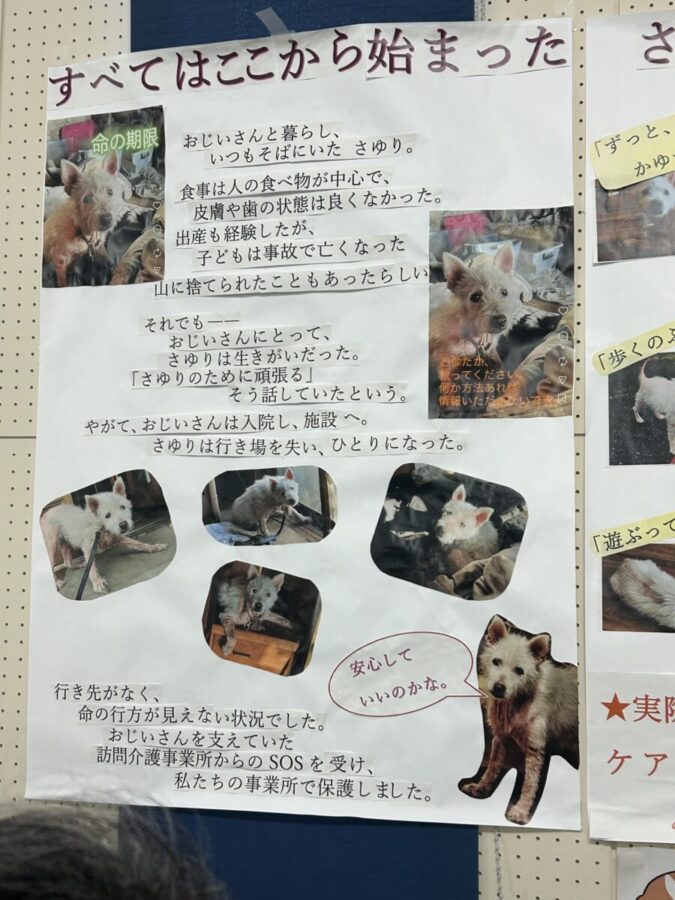 すべてはここから始まった
命の期限
おじいさんと暮らし、
いつもそばにいた さゆり。
食事は人の食べ物が中心で、
皮膚や歯の状態は良くなかった。
出産も経験したが、
子どもは事故で亡くなった
山に捨てられたこともあったらしい
それでも――
おじいさんにとって、
さゆりは生きがいだった。
「さゆりのために頑張る」
そう話していたという。
やがて、おじいさんは入院し、施設へ。
さゆりは行き場を失い、ひとりになった。
どなたか、
救ってください。
何か方法あれば
情報いただきたいです
安心して
いいのかな。
行き先がなく、
命の行方が見えない状況でした。
おじいさんを支えていた
訪問介護事業所からのSOSを受け、
私たちの事業所で保護しました。
さ
「ずっと、
かゆ
「歩くのふ
「遊ぶって
★実際
ケア